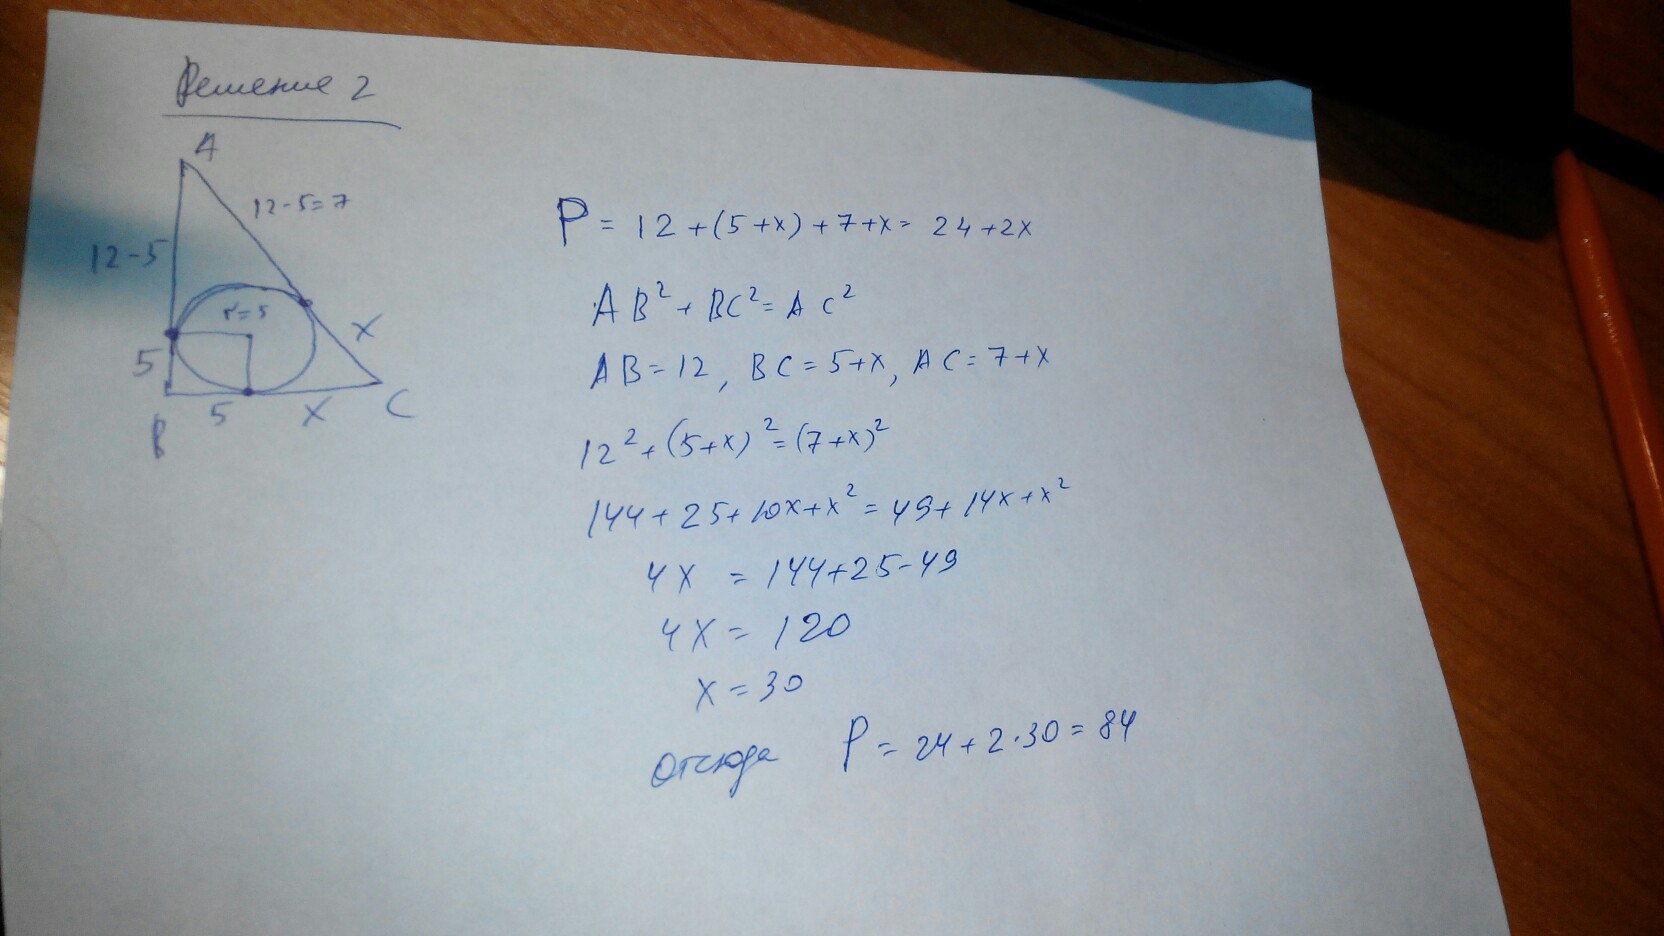 Решение 2
A
12-5=7
12-5
r=5
5
X
B
5
X
C
P = 12 + (5+x) + 7+x = 24+2x
AB² + BC² = AC²
AB = 12, BC = 5+x, AC = 7+x
12² + (5+x)² = (7+x)²
144 + 25 + 10x + x² = 49 + 14x + x²
4x = 144+25-49
4x = 120
x = 30
Отсюда P = 24 + 2·30 = 84